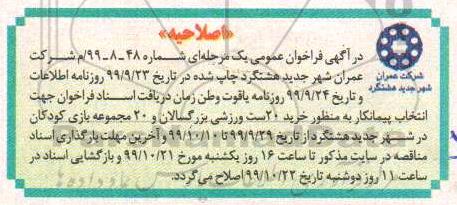 «اصلاحیه»
شرکت عمران
شهر جدید هشتگرد
در آگهی فراخوان عمومی یک مرحله‌ای شماره ۴۸-۸-۹۹/م شرکت
عمران شهر جدید هشتگرد چاپ شده در تاریخ ۹۹/۹/۲۳ روزنامه اطلاعات
و تاریخ ۹۹/۹/۲۴ روزنامه یاقوت وطن زمان دریافت اسناد فراخوان جهت
انتخاب پیمانکار به منظور خرید ۲۰ست ورزشی بزرگسالان و ۲۰ مجموعه بازی کودکان
در شهر جدید هشتگرد از تاریخ ۹۹/۹/۲۹ تا ۹۹/۱۰/۱۰ و آخرین مهلت بارگذاری اسناد
مناقصه در سایت مذکور تا ساعت ۱۶ روز یکشنبه مورخ ۹۹/۱۰/۲۱ و بازگشایی اسناد در
ساعت ۱۱ روز دوشنبه تاریخ ۹۹/۱۰/۲۲ اصلاح می‌گردد.